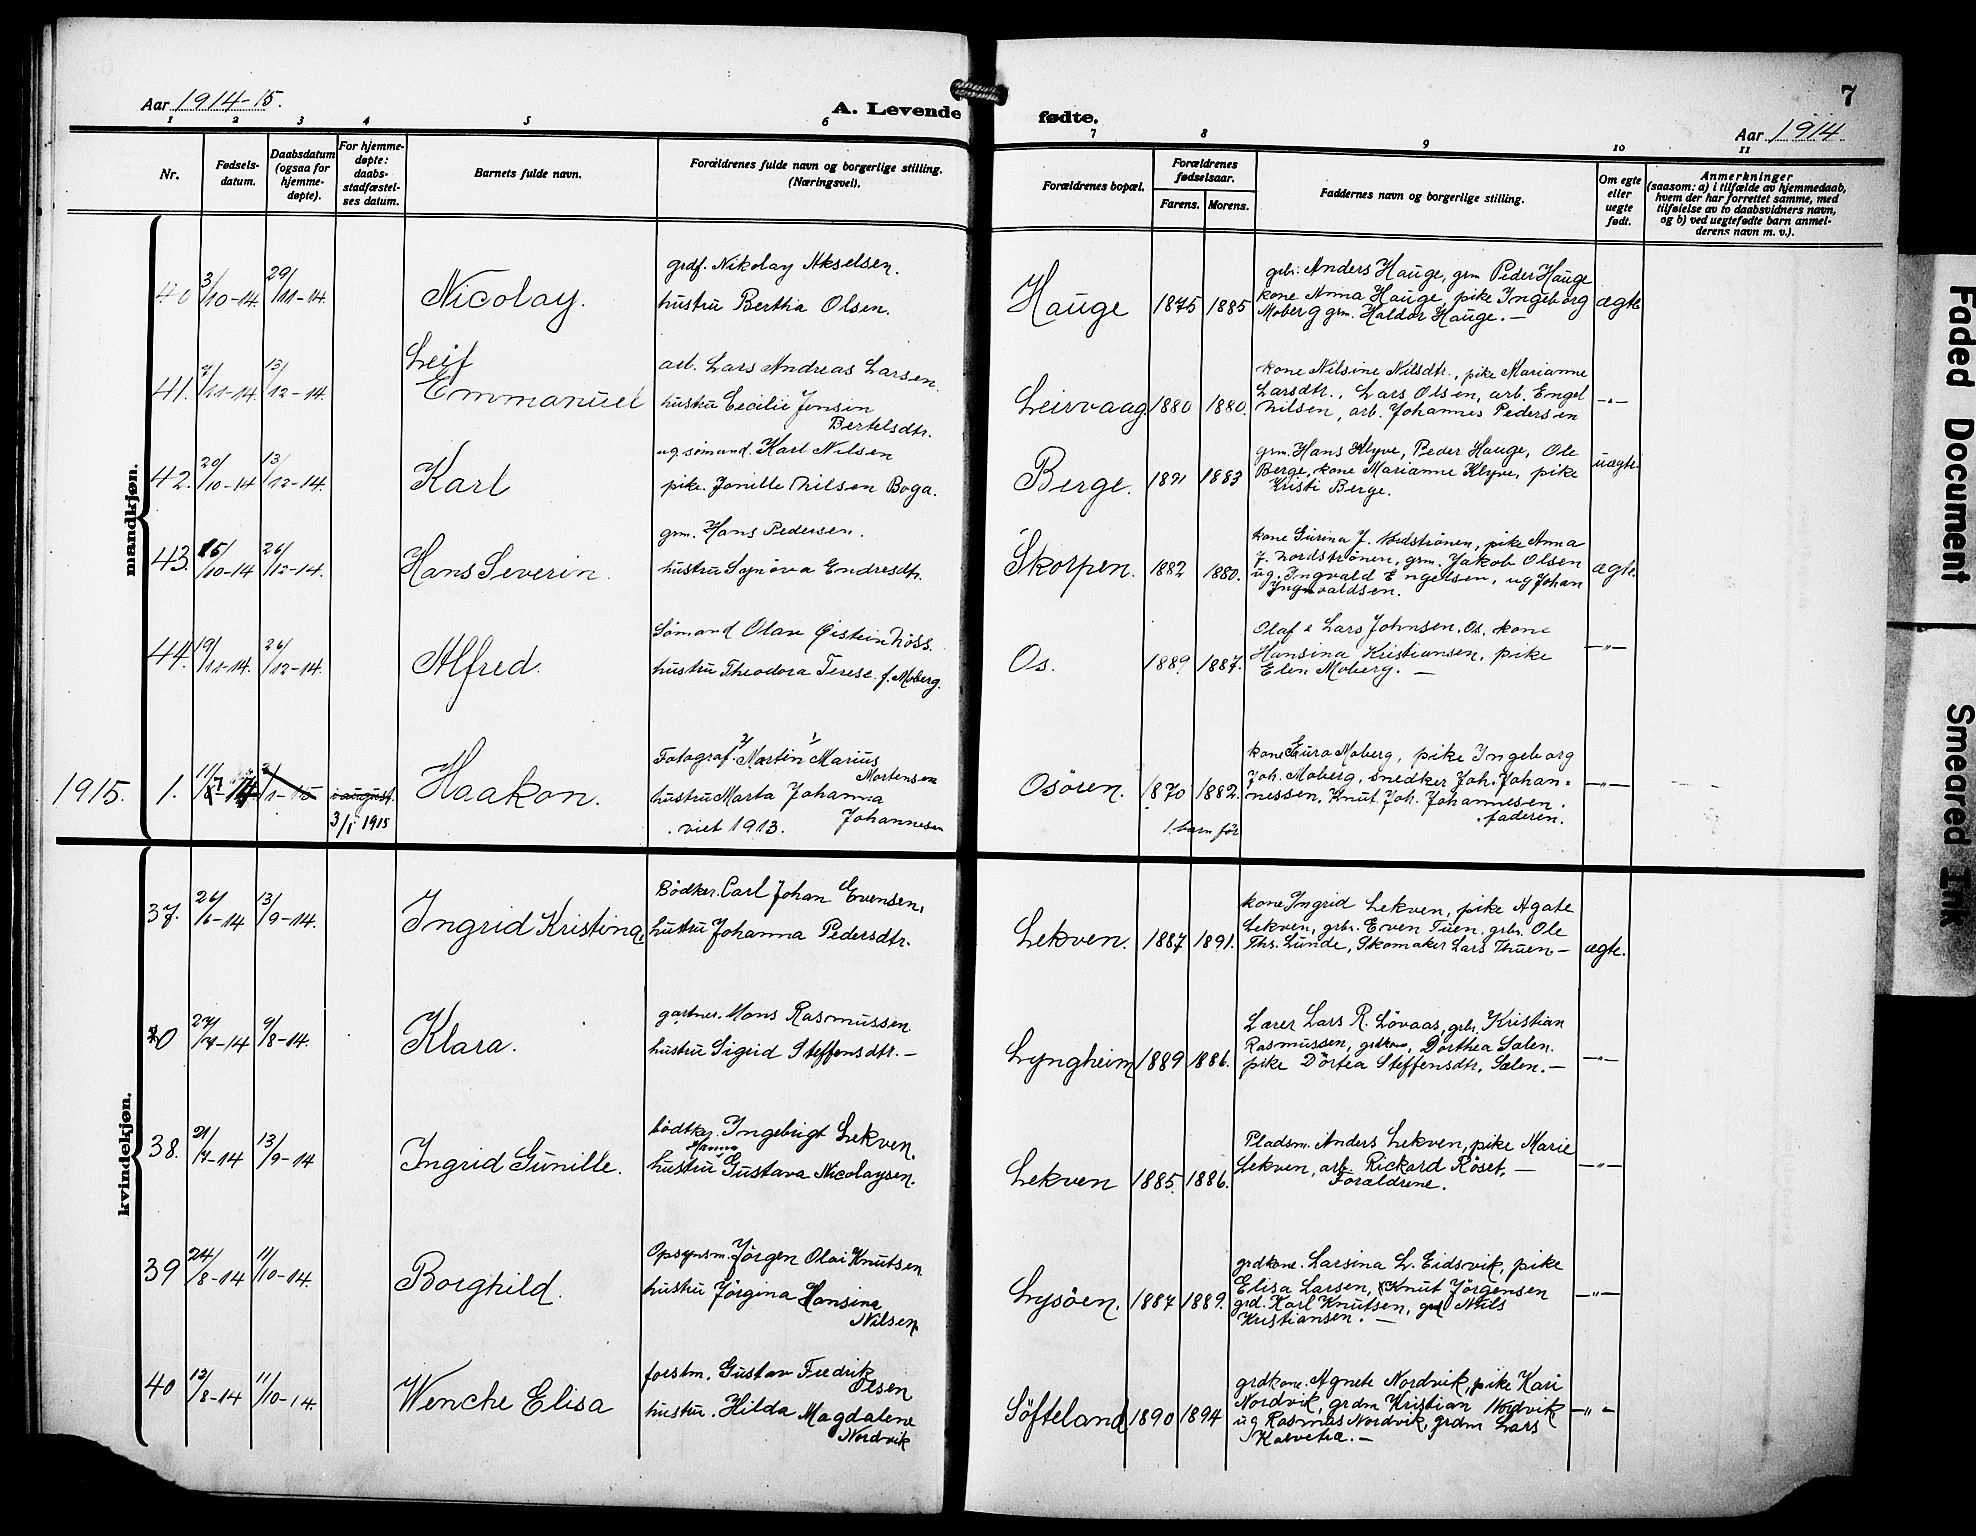 7
Aar 1914-15.
A. Levende fødte.
Aar 1914
1 2 3 4 5 6 7 8 9 10 11
Nr.
Fødsels-
datum.
Daabsdatum
(ogsaa for
hjemme-
døpte).
For hjemme-
døpte:
daabs-
stadfæstel-
ses datum.
Barnets fulde navn.
Forældrenes fulde navn og borgerlige stilling.
(Næringsvei).
Forældrenes bopæl.
Forældrenes
fødselsaar.
Farens. Morens.
Faddernes navn og borgerlige stilling.
Om egte
eller
uegte
født.
Anmerkninger
(saasom: a) i tilfælde av hjemmedaab,
hvem der har forrettet samme, med
tilføielse av to daabsvidners navn,
og b) ved uegtefødte barn anmel-
derens navn m. v.).
mandkjøn.
40 3/10-14 29/11-14. Nicolay.
grdf. Nikolay Akselsen.
hustru Bertha Olsen.
Hauge 1875 1885
grbr. Anders Hauge, grm Peder Hauge
kone Anna Hauge, pike Ingeborg
Moberg grm. Haldor Hauge. —
ægte
41. 7/11-14 13/12-14. Leif
Emmanuel
arb. Lars Andreas Larsen
hustru Cecilie Jensin
Bertelsdtr.
Leirvaag 1880 1880.
kone Nilsine Nilsdtr., pike Marianne
Larsdtr., Lars Olsen, arb. Engel
Nilsen, arb. Johannes Pedersen
—"—
42. 20/10-14 13/12-14. Karl
ug. sømand. Karl Nilsen
pike. Jonille Nilsen Boga.
Berge. 1891 1883
grm. Hans Klyve, Peder Hauge, Ole
Berge, kone Marianne Klyve, pike
Kristi Berge.
uægte
43. 15/10-14 26/12-14. Hans Severin.
grm. Hans Pedersen.
hustru Synøva Endresdtr.
Skorpen. 1882 1880.
kone Gurina J. Nordstrønen, pike Anna
J. Nordstrønen, grm. Jakob Olsen
ug. Ingvald Engelsen, ug Johan
Yngvaldsen.
ægte
44. 19/11-14. 26/12-14. Alfred.
Sømand Olav Øistein Nöss.
hustru Theodora Terese f. Moberg.
Os. 1889 1887.
Olaf & Lars Johnsen, Os. kone
Hansina Kristiansen, pike
Elen Moberg. —
—"—
1915. 1. 11/7 14 3/1-15 i august.
3/1 1915
Haakon.
Fotograf. 2/ Martin 1/ Marius
Mortensen
hustru Marta Johanna
Johannesen
. viet 1913.
Osören. 1870 1882.
1. barn för
kone Gura Moberg, pike Ingeborg
Joh. Moberg, snedker Joh. Johan=
nessen, Knut Joh. Johannesen.
. faderen.
—"—
kvindekjøn.
37. 26/6-14 13/9-14. Ingrid Kristina.
Bödker. Carl Johan Evensen.
hustru Johanna Pedersdtr.
Lekven. 1887 1891.
kone Ingrid Lekven, pike Agate
Lekven, grbr. Even Tuen, grbr. Ole
Ths. Lunde, Skomaker Lars Thuen —
ægte.
0 27/7-14 9/8-14. Klara.
gartner. Mons Rasmussen
hustru Sigrid Steffensdtr. —
Lyngheim 1889 1886.
Lærer Lars R. Lövaas, grbr. Kristian
Rasmussen, grdkone, Dorthea Sælen.
pike Dörtea Steffensdtr. Sælen. —
—"—
38. 21/7-14 13/9-14 Ingrid Gunille.
bödtker. Ingebrigt Lekven.
Hanna
hustru Gustava Nicolaysen.
Lekven 1885. 1886.
Pladsm. Anders Lekven, pike Marie
Lekven, arb. Rickard Röset, —
Forældrene.
—"—
39 24/8-14 11/10-14. Borghild.
Opsynsm. Jörgen Olai Knutsen
hustru Jørgina Hansine
Nilsen.
Lysöen. 1887 1889.
grdkone. Larsina L. Eidsvik, pike
Elisa Larsen, Knut Jörgensen
grd. Karl Knutsen, grd Nils
Kristiansen. —
—"—
40 13/8-14 11/10-14. Wenche Elisa
forstm. Gustav Fredrik
Olsen
hustru. Hilda Magdalene
Nordvik
Söfteland 1890 1894
grdkone. Agnete Nordvik, pike Kari
Nordvik, grdm Kristian Nordvik
ug Rasmus Nordvik, grdm Lars
Kalvetra. —
—"—
Faded Document
Smeared Ink